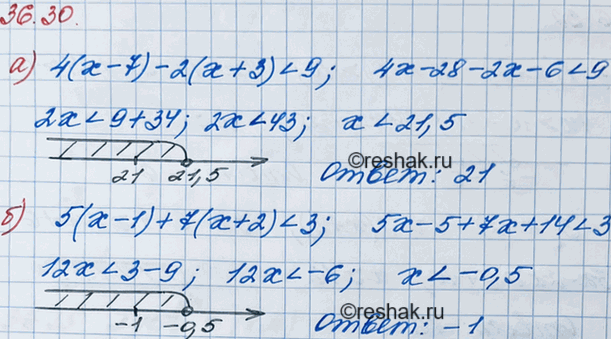 36.30.
а) 4(x-7)-2(x+3)<9; 4x-28-2x-6<9
2x<9+34; 2x<43; x<21,5
21 21,5
©reshak.ru
ответ: 21
б) 5(x-1)+7(x+2)<3; 5x-5+7x+14<3
12x<3-9; 12x<-6; x<-0,5
-1 -0,5
©reshak.ru
ответ: -1